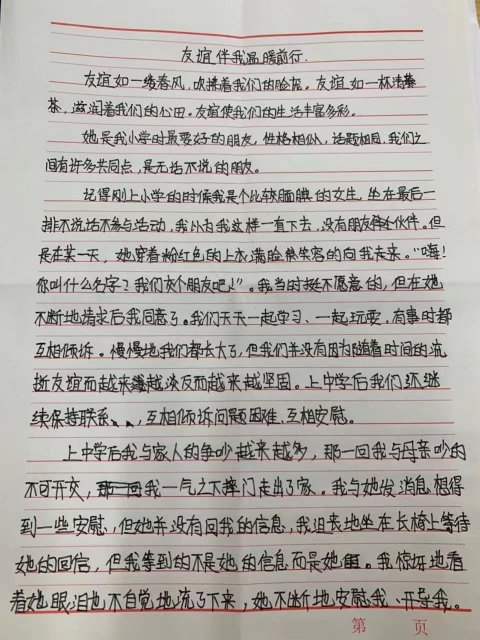 友谊伴我温暖前行.
友谊如一缕春风，吹拂着我们的脸庞。友谊如一杯清
茶，滋润着我们的心田。友谊使我们的生活丰富多彩。
她是我小学时最要好的朋友，性格相似，话题相同，我们之
间有许多共同点，是无话不说的朋友。
记得刚上小学的时候我是个比较腼腆的女生，坐在最后一
排不说话不参与活动，我以为我这样一直下去，没有朋友伙伴。但
是在某一天，她穿着粉红色的上衣满脸笑容的向我走来。“嗨！
你叫什么名字？我们交个朋友吧！”。我当时挺不愿意的，但在她
不断地请求后我同意了。我们天天一起学习、一起玩耍，有事时都
互相倾诉。慢慢地我们都长大了，但我们并没有因为随着时间的流
逝友谊而越来越淡反而越来越坚固。上中学后我们还继
续保持联系、，互相倾诉问题困难，互相安慰。
上中学后我与家人的争吵越来越多，那一回我与母亲吵的
不可开交，我一气之下摔门走出了家。我与她发消息想得
到一些安慰，但她并没有回我的信息，我沮丧地坐在长椅上等待
她的回信，但我等到的不是她的信息而是她。我惊讶地看
着她眼泪也不自觉地流了下来，她不断地安慰我、开导我。
第 页